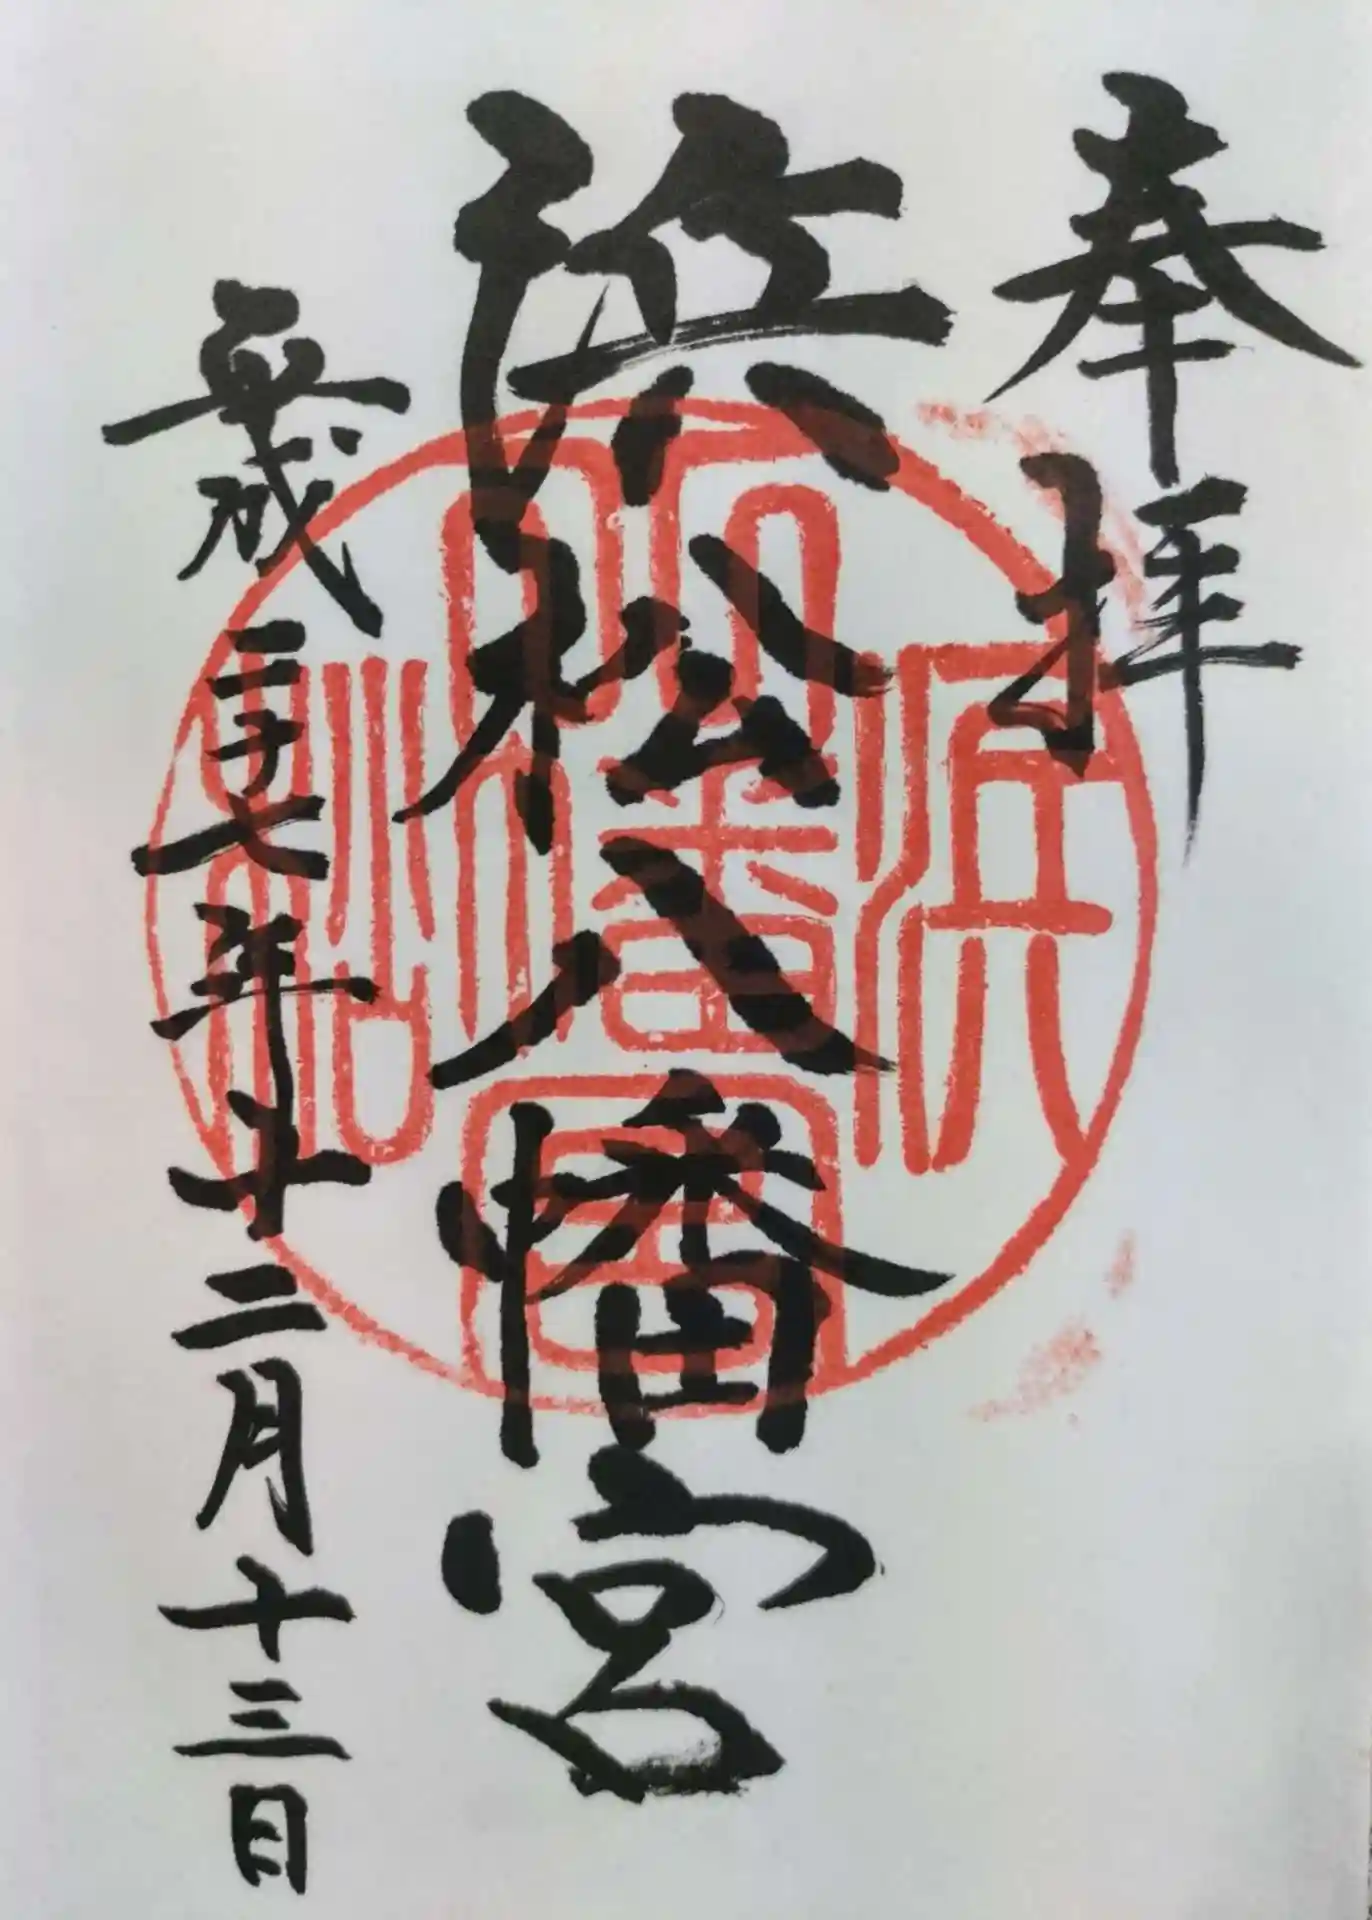 奉拝
浜松八幡宮
平成二十七年十二月十三日
浜
八幡宮
松